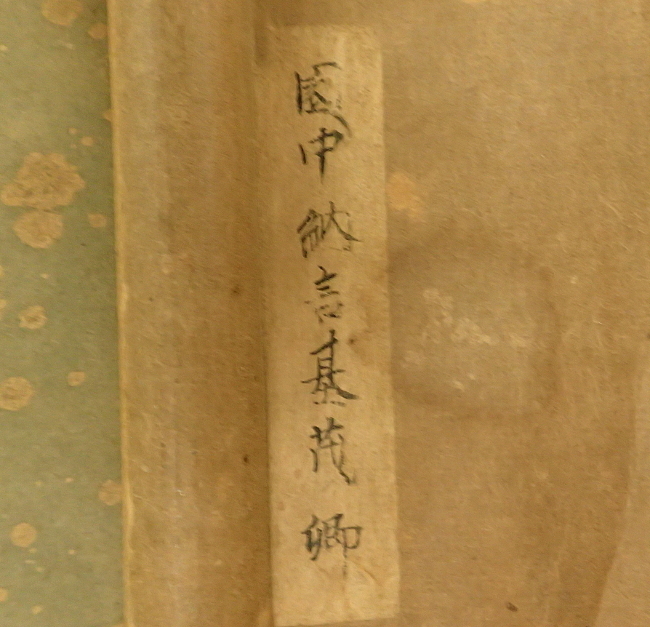 園中納言基茂卿